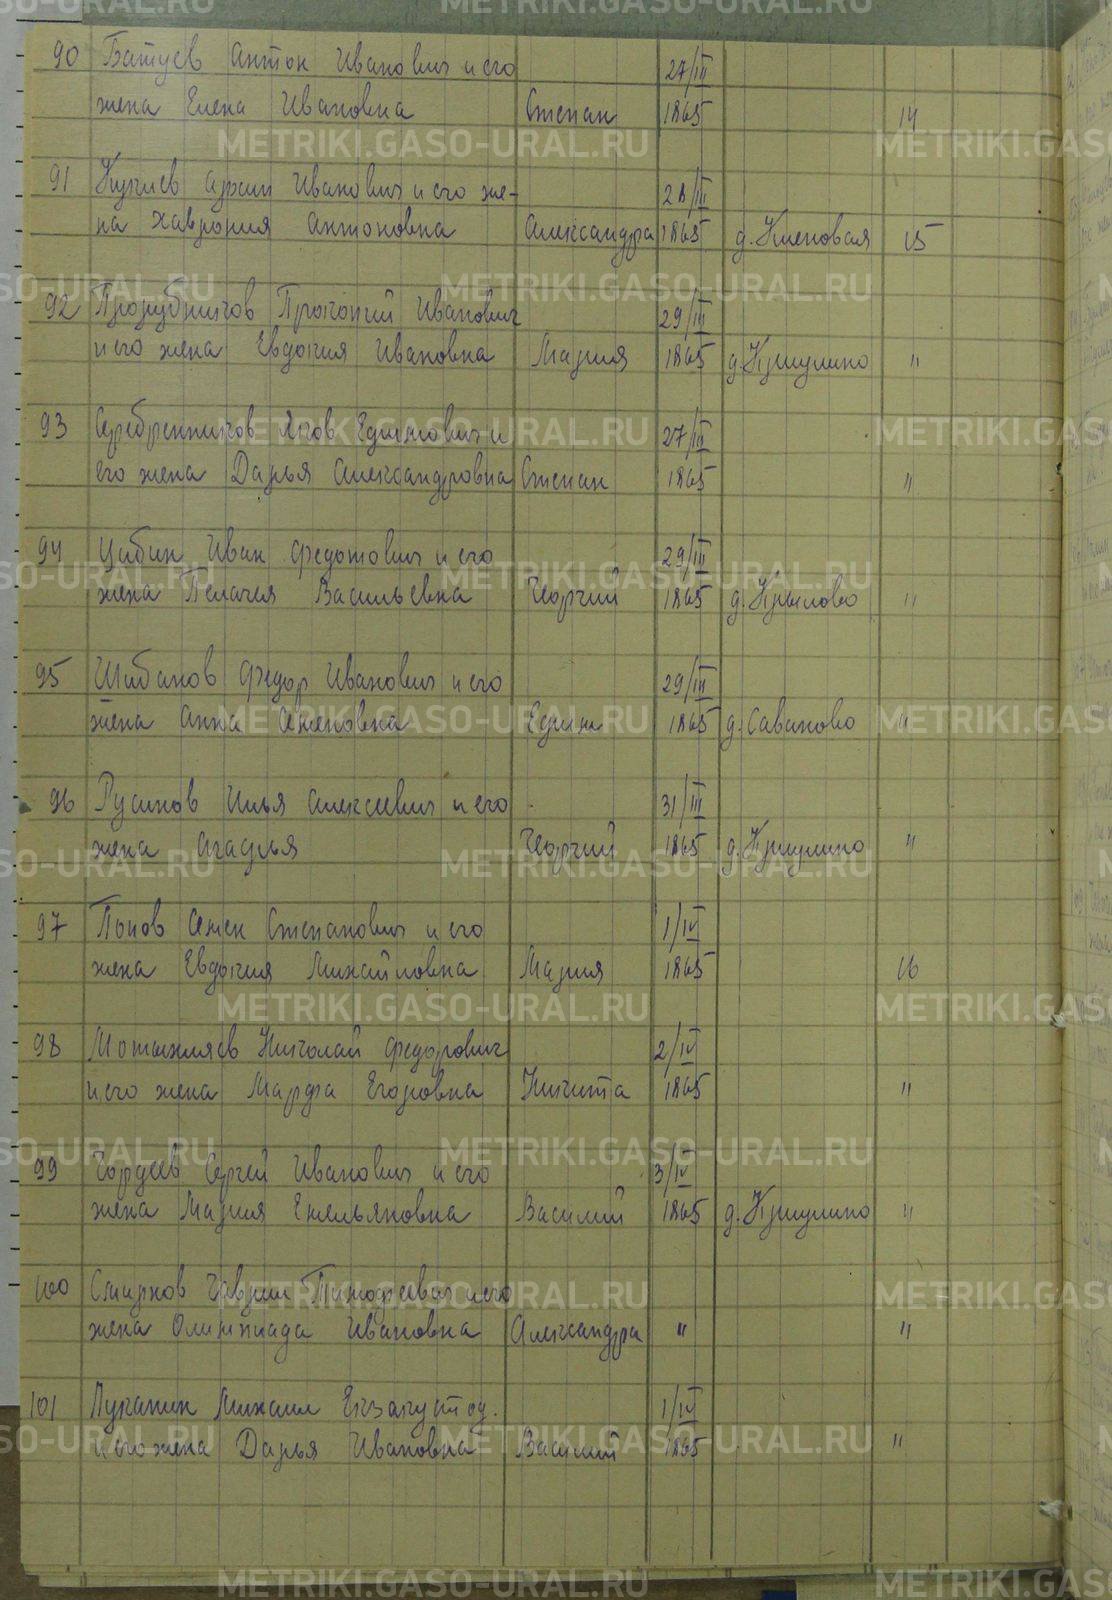 90 Батуев Антон Иванович и его 27/III
жена Елена Ивановна Степан 1865 14
91 Иванович и его же- 28/III
на Хаврония Антоновна Александра 1865 д. Кленовая 15
92 Прокопий Иванович 29/III
и его жена Евдокия Ивановна Мария 1865 д. Криулино "
93 Серебренников Яков Ефимович и 27/III
его жена Дарья Александровна Степан 1865 "
94 Цыбин Иван Федотович и его 29/III
жена Пелагея Васильевна Георгий 1865 д. Крылово "
95 Шибанов Федор Иванович и его 29/III
жена Анна Семеновна Ефим 1865 д. Саваново "
96 Русинов Илья Алексеевич и его 31/III
жена Агафья Георгий 1865 д. Криулино "
97 Попов Семен Степанович и его 1/IV
жена Евдокия Михайловна Мария 1865 16
98 Мотыхляев Николай Федорович 2/IV
и его жена Марфа Егоровна Никита 1865 "
99 Гордеев Сергей Иванович и его 3/IV
жена Мария Емельяновна Василий 1865 д. Криулино "
100 Смирнов Гаврил Тимофеевич и его
жена Олимпиада Ивановна Александра " "
101 Луканин Михаил 1/IV
и его жена Дарья Ивановна Василий 1865 "
METRIKI.GASO-URAL.RU